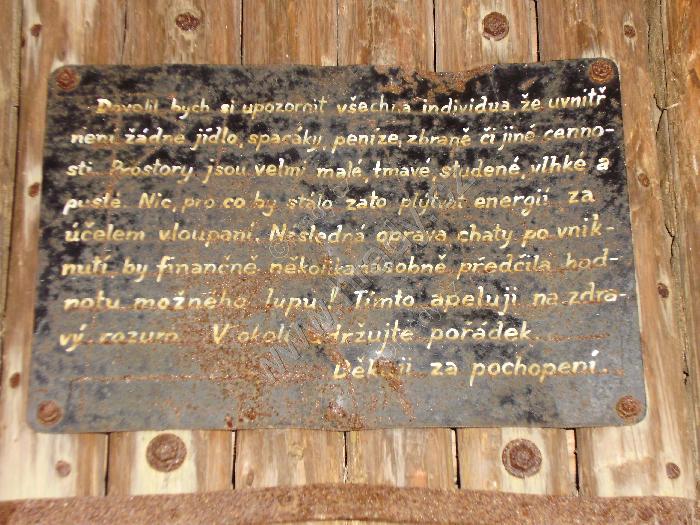 Dovolil bych si upozornit všechna individua, že uvnitř
není žádné jídlo, spacáky, peníze, zbraně či jiné cenno-
sti. Prostory jsou velmi malé, tmavé, studené, vlhké a
pusté. Nic, pro co by stálo zato plýtvat energií za
účelem vloupaní. Následná oprava chaty po vnik-
nutí by finančně několikanásobně předčila hod-
notu možného lupu! Tímto apeluji na zdra-
vý rozum. V okolí udržujte pořádek.
Děkuji za pochopení.